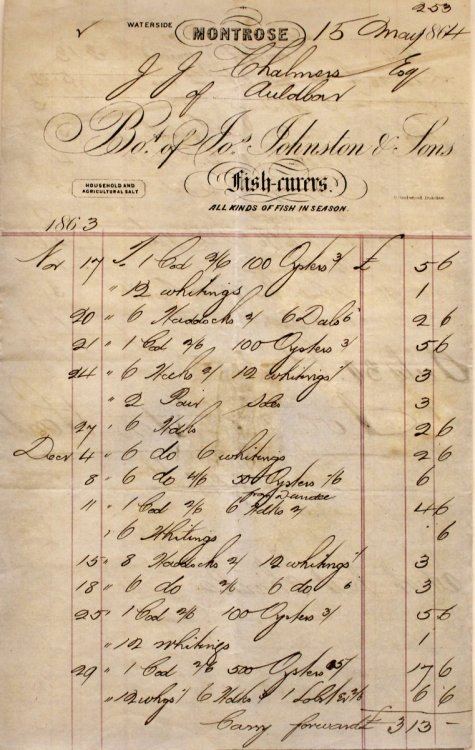 253
WATERSIDE MONTROSE 15 May 1864
J J Chalmers Esq
of Auldbar
Bot. of Jos. Johnston & Sons
HOUSEHOLD AND AGRICULTURAL SALT
Fish-curers.
ALL KINDS OF FISH IN SEASON.
1863
Nov 17 To 1 Cod 2/6 100 Oysters 3/ £ 5 6
" 12 whitings 1
20 " 6 Haddocks 2/ 6 Dabs 6 2 6
21 " 1 Cod 2/6 100 Oysters 3/ 5 6
24 " 6 2/ 12 whitings 1/ 3
" 2 Pair Soles 3
27 " 6 Hdks 2 6
Decr 4 " 6 do 6 whitings 2 6
8 " 6 do 500 Oysters from Dundee 6
11 " 1 Cod 2/6 6 Hdks 2/ 4 6
" 6 Whitings 6
15 " 8 Haddocks 2/ 12 whitings 1/ 3
18 " 6 do 2/6 6 do 6 3
25 " 1 Cod 2/6 100 Oysters 3/ 5 6
" 12 Whitings 1
29 " 1 Cod 2/6 500 Oysters 15/ 17 6
" 12 whgs 1/ 6 Hdks 1 6 6
Carry forward £ 3 13 -